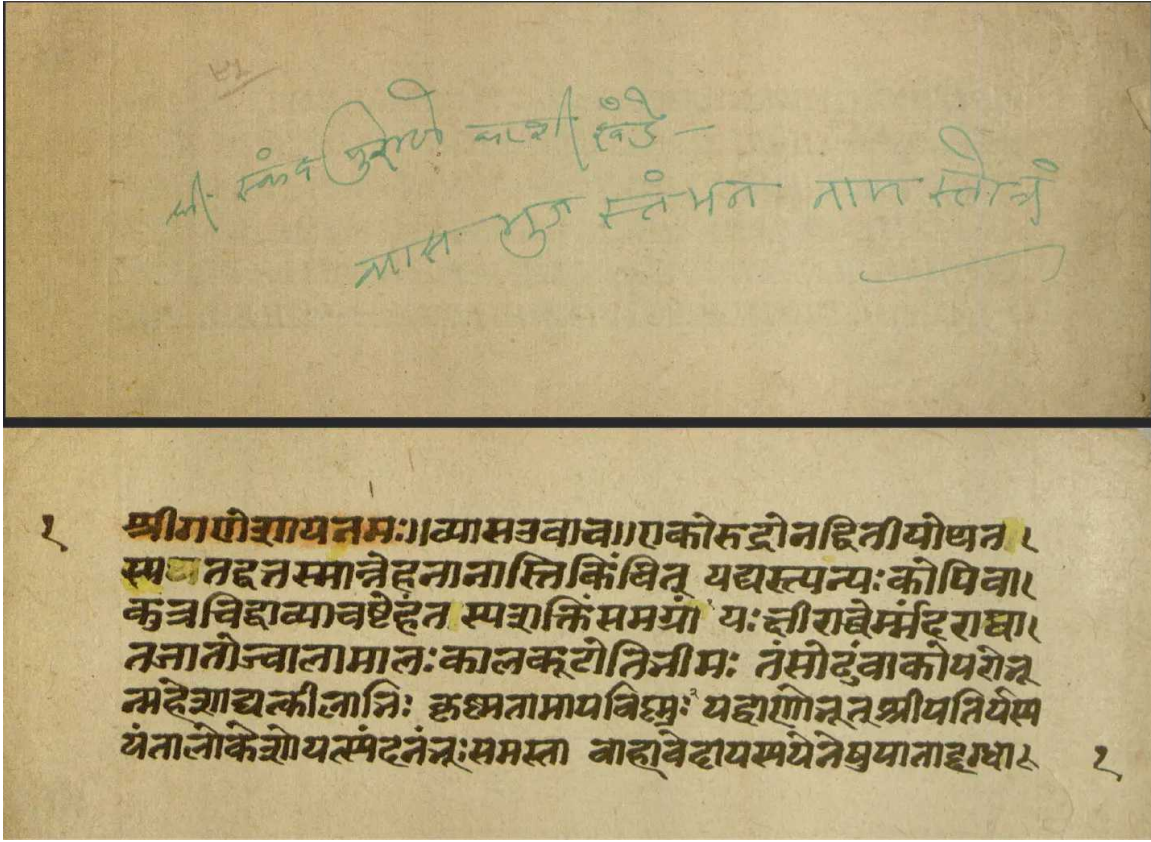 ५१
श्री स्कंद पुराणे काशी खंडे –
व्यास भुज स्तंभन नाम स्तोत्रं
१ श्रीगणेशायनमः॥व्यासउवाच॥एकोरुद्रोनद्वितीयोयतन।
स्यतद्वतस्मान्नेहनानास्तिकिंचित् यद्यस्त्यन्यःकोपिवा।
कुत्रचिद्वाव्याचष्टेहंतस्यशक्तिंसमग्रां यःक्षीराब्धेर्म्मंदराघा।
तजातोज्वालामालःकालकूटोतिभीमः तंसोढुंवाकोपरोभू
न्महेशाद्यत्कीलाभिः कृष्मतामापविष्मुः यद्वाणोभूत्श्रीपतिर्यस्य
यंतालोकेशोयत्स्यंदनंभूःसमस्ता वाहावेदायस्ययेनेषुपाताद्दग्धा। १